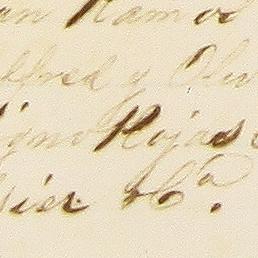 an Ramos
lfred y Oliv
igno Rojas
sier & Cª.